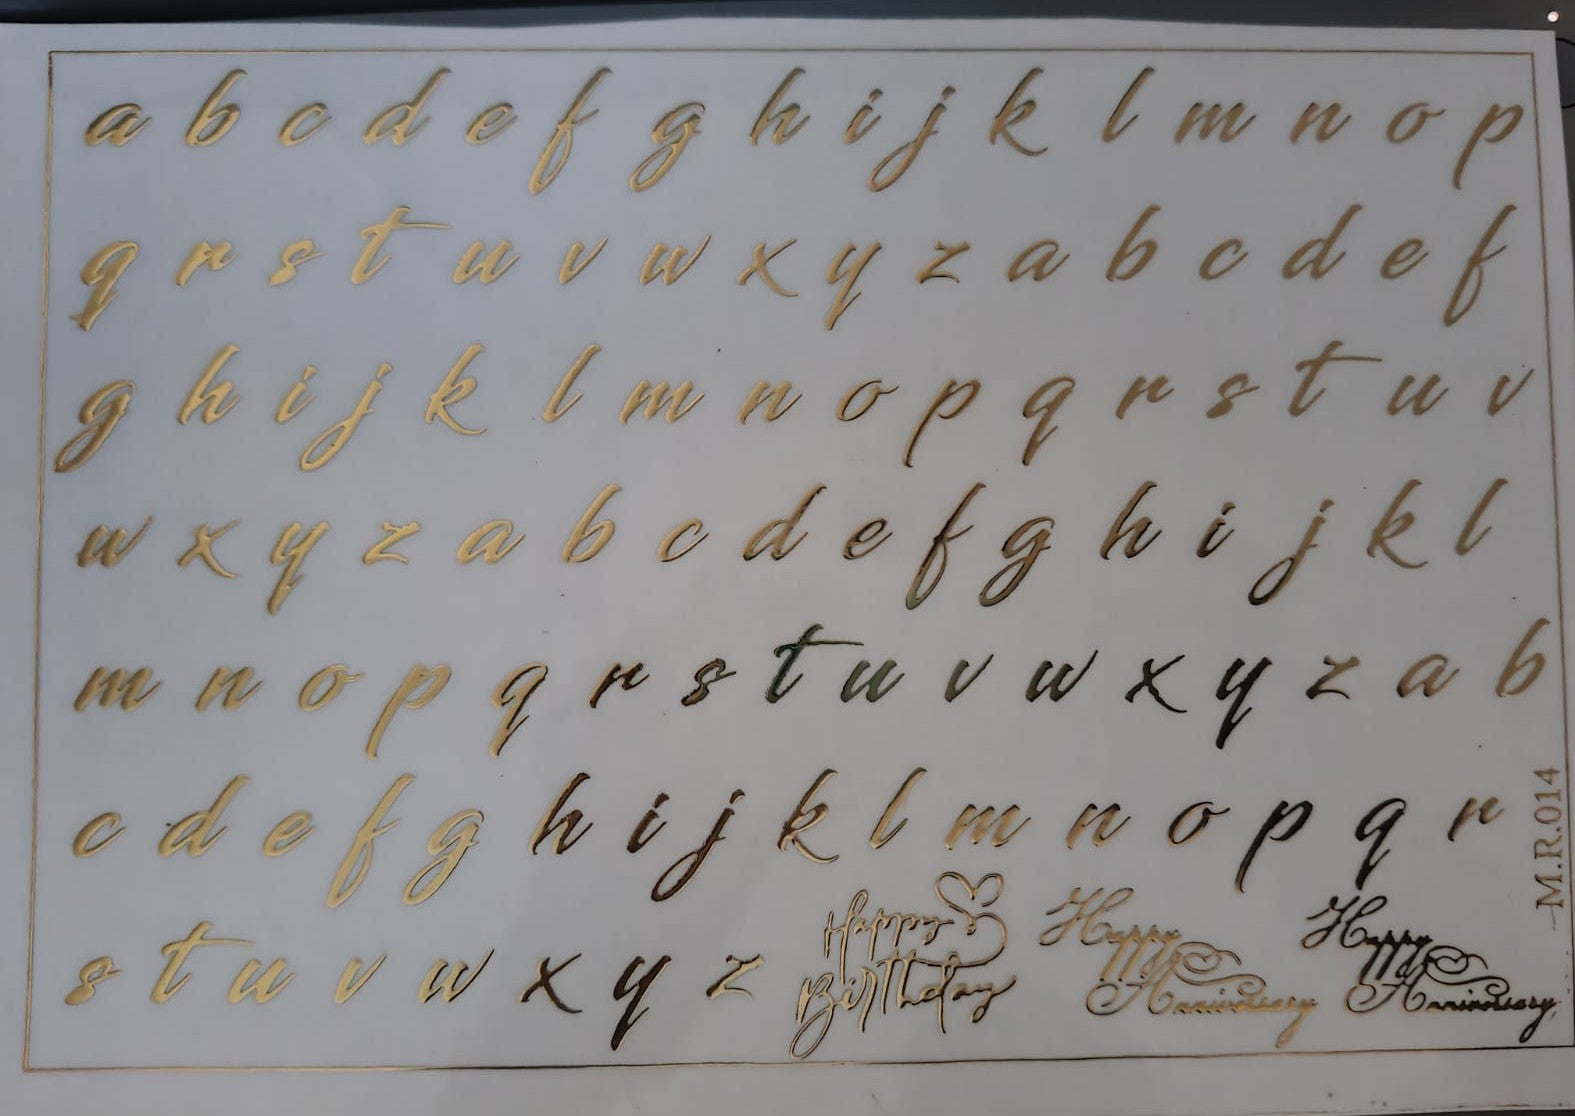 a b c d e f g h i j k l m n o p
q r s t u v w x y z a b c d e f
g h i j k l m n o p q r s t u v
w x y z a b c d e f g h i j k l
m n o p q r s t u v w x y z a b
c d e f g h i j k l m n o p q r
s t u v w x y z
Happy
Birthday
Happy
Anniversary
Happy
Anniversary
M.R.014